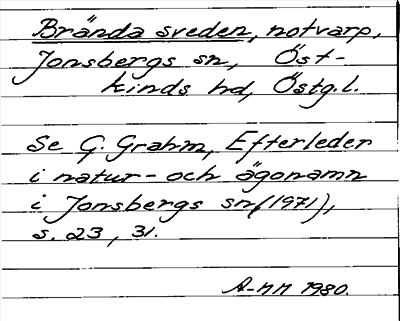 Brända sveden, notvarp,
Jonsbergs sn, Öst-
kinds hd, Östg.l.
Se G. Grahm, Efterleder
i natur- och ägonamn
i Jonsbergs sn (1971),
s. 23, 31.
A-NN 1980.